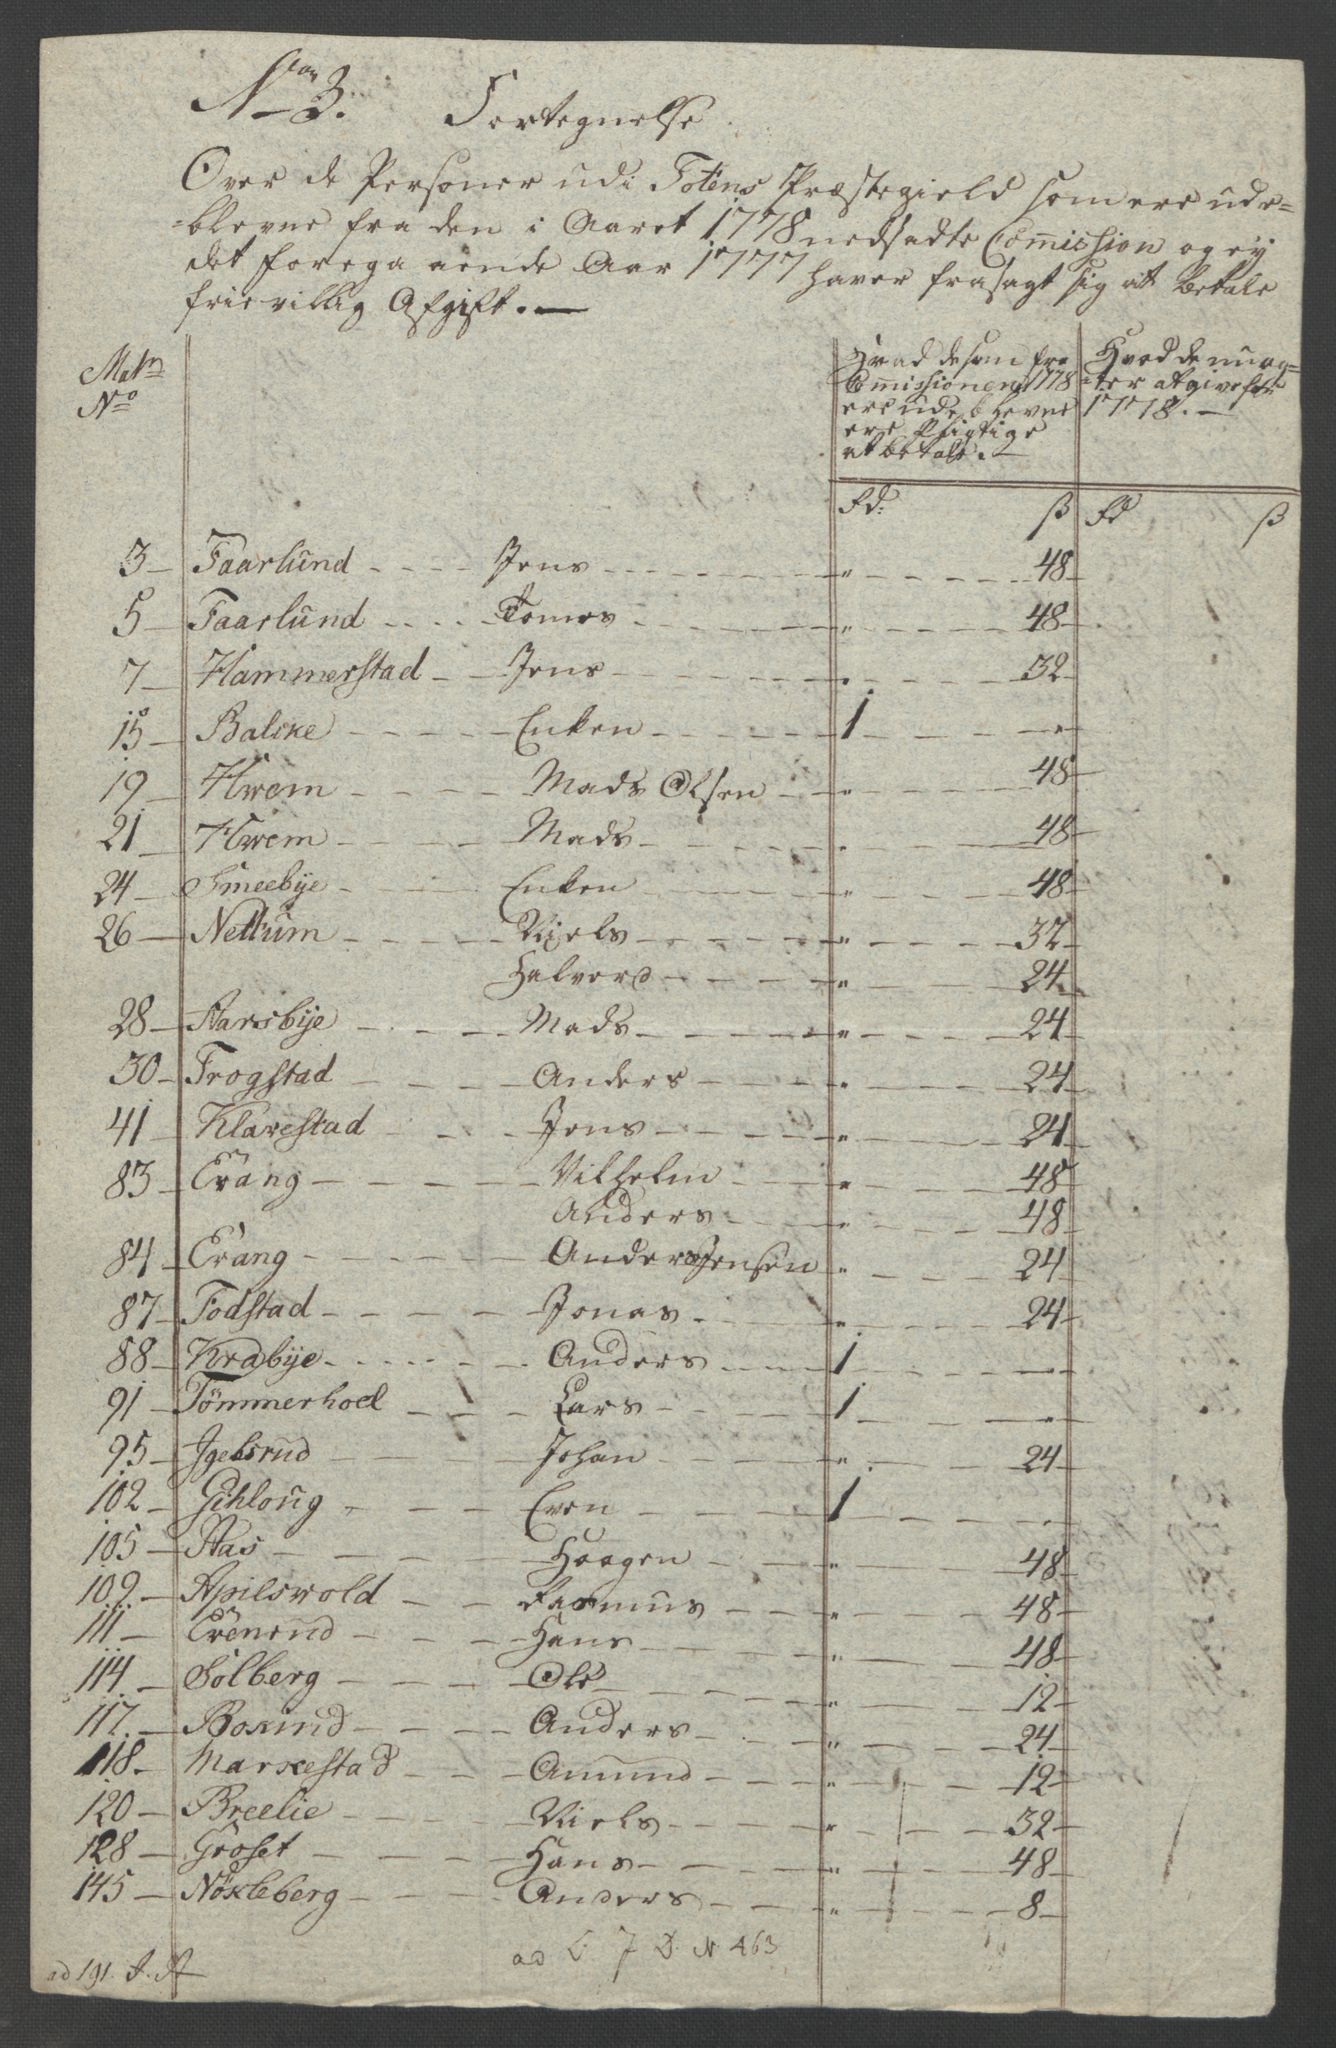 No 3. Fortegnelse
Over de Personer udi Totens Præstegield som ere ude=
blevne fra den i Aaret 1778 nedsadte Comission og ey
det foregaaende Aar 1777 haver frasagt sig at betale
frievillig Afgift. —
Matr No
Hvad de som fra Comissionen 1778 ere udeblevne ere Pligtige at betale.
Hvad de nu agter at give for 1778. —
rd: ß rd ß
3 — Faarlund Jens " 48
5 — Faarlund Tomes " 48
7 — Hammerstad Jens " 32
15 — Balcke Enken 1 "
19 — Hwem Mads Olsen " 48
21 — Hwem Mads " 48
24 — Smeebye Enken " 48
26 — Nettum Niels " 32
Halvord " 24
28 — Aarsbye Mads " 24
30 — Frogstad Anders " 24
41 — Klarestad Jens " 24
83 — Erang Vilhelm " 48
Anders " 48
84 — Erang Anders Jensen " 24
87 — Fodstad Jonas " 24
88 — Krabye Anders 1 "
91 — Tömmerhoel Lars 1 "
95 — Igelsrud Johan " 24
102 — Gihloug Even 1 "
105 — Aas Haagen " 48
109 — Apilswold Rasmus " 48
111 — Hans " 48
114 — Solberg Ole " 12
117 — Anders " 24
118 — Markestad Amund " 12
120 — Breelie Niels " 32
128 — Groset Hans " 48
145 — Nökleberg Anders " 8
ad L: 7 D. N 463
ad 191.